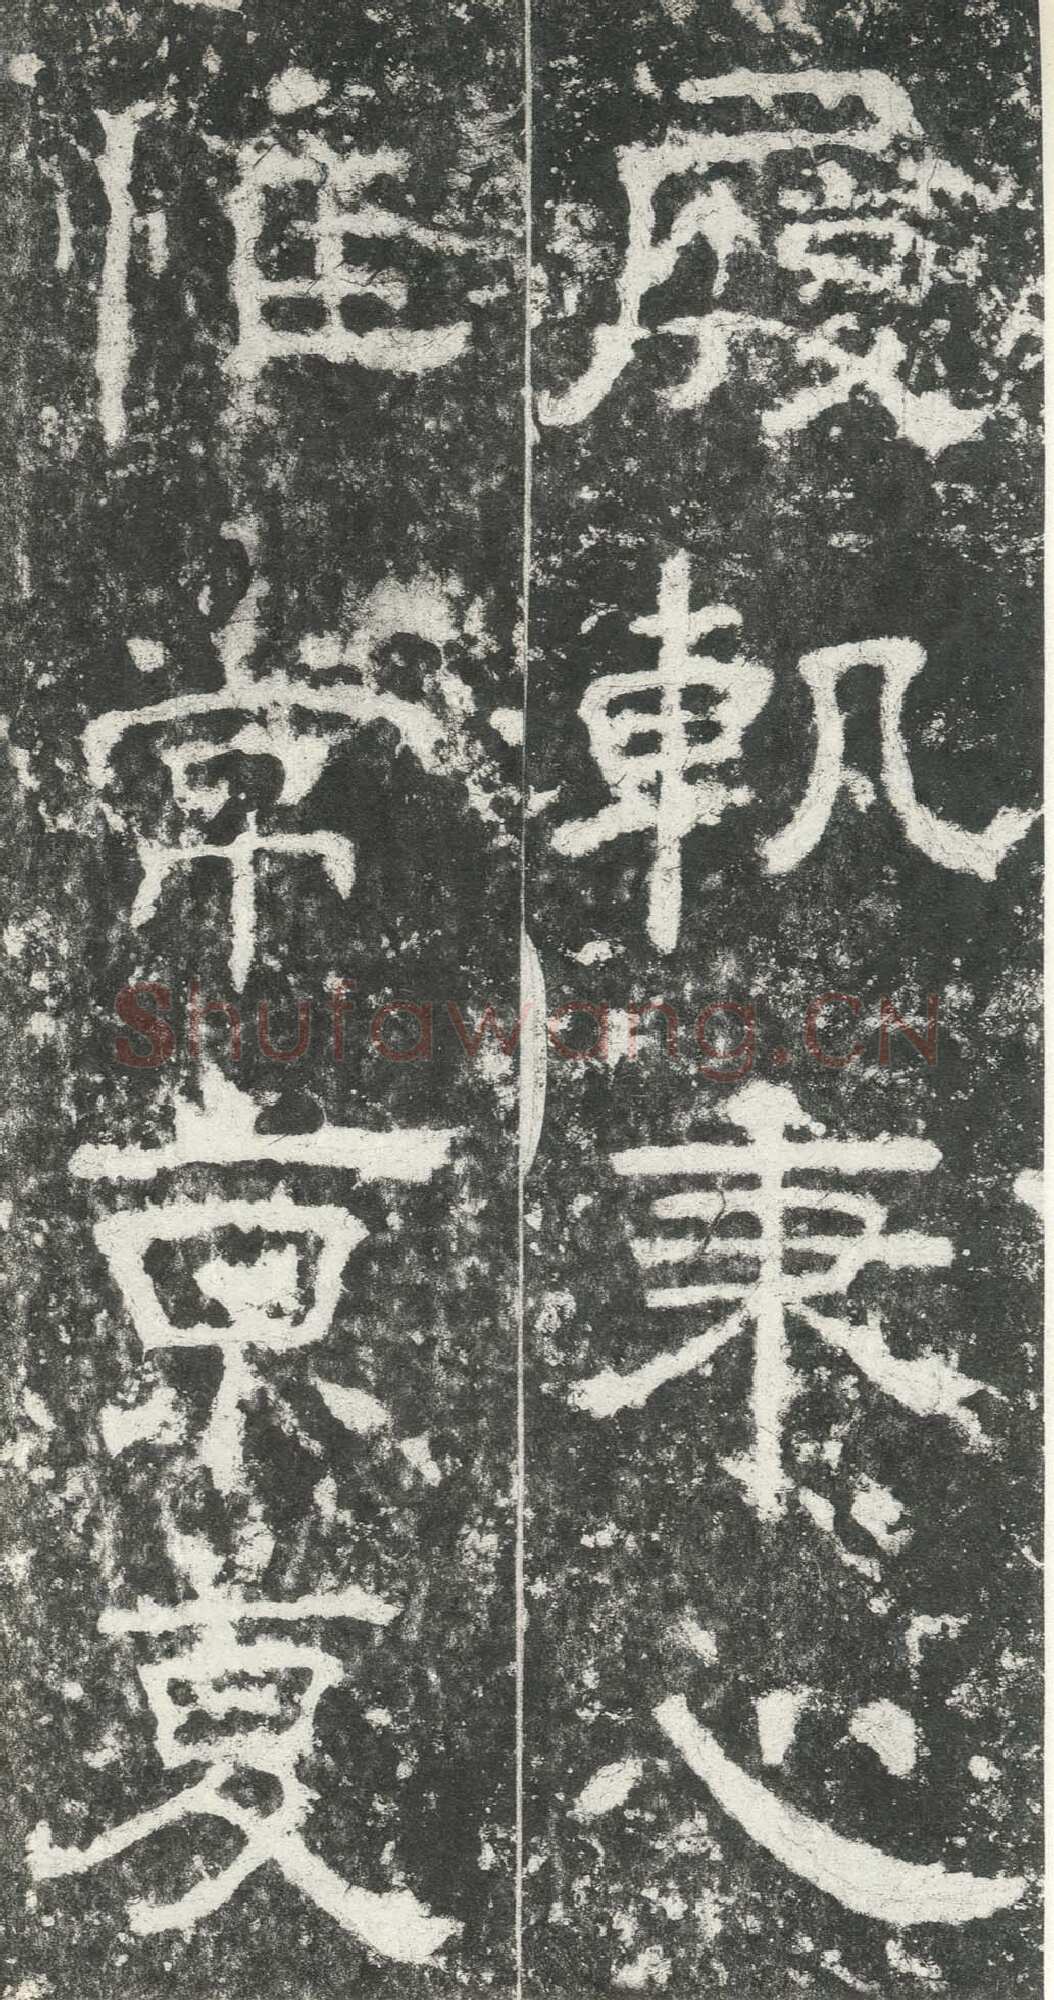 履軌秉心
惟常京夏
Shufawang.CN